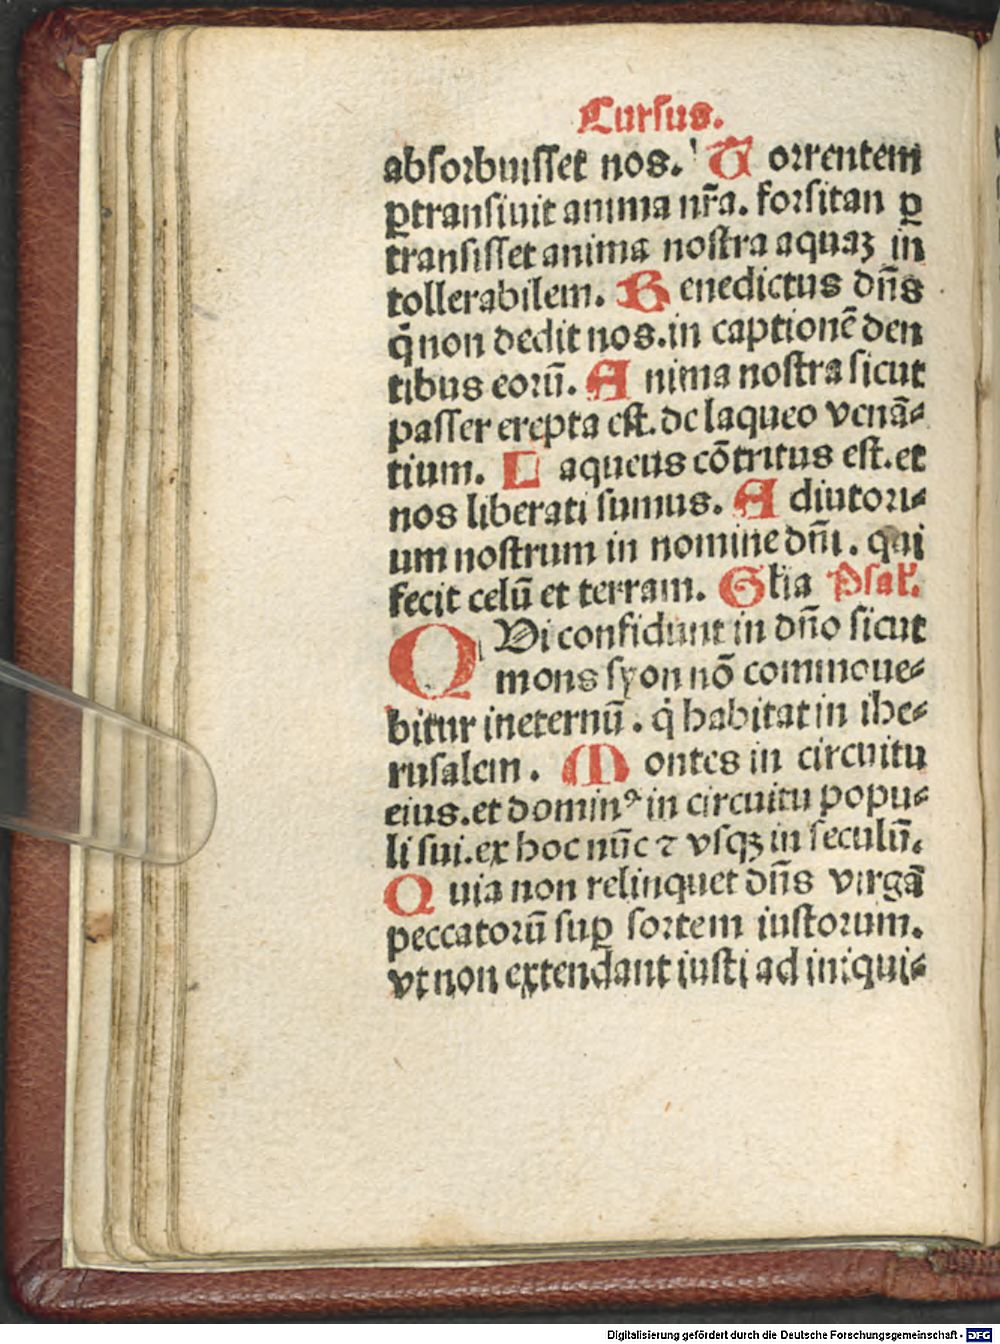 Cursus.
absorbuisset nos. Torrentem
ꝑtransiuit anima nr̃a. forsitan ꝑ
transisset anima nostra aquaꝫ in
tollerabilem. Benedictus dñs
q̇ non dedit nos. in captionē den
tibus eorū. Anima nostra sicut
passer erepta est. de laqueo venā⸗
tium. Laqueus cōtritus est. et
nos liberati sumus. Adiutori⸗
um nostrum in nomine dñi. qui
fecit celū et terram. Glia Psal.
QVi confidunt in dño sicut
mons syon nō commoue⸗
bitur ineternū. q̇ habitat in ihe⸗
rusalem. Montes in circuitu
eius. et dominꝰ in circuitu popu⸗
li sui. ex hoc nūc ⁊ vsqꝫ in seculū.
Quia non relinquet dñs virgā
peccatorū suꝑ sortem iustorum.
vt non extendant iusti ad iniqui⸗
Digitalisierung gefördert durch die Deutsche Forschungsgemeinschaft - DFG